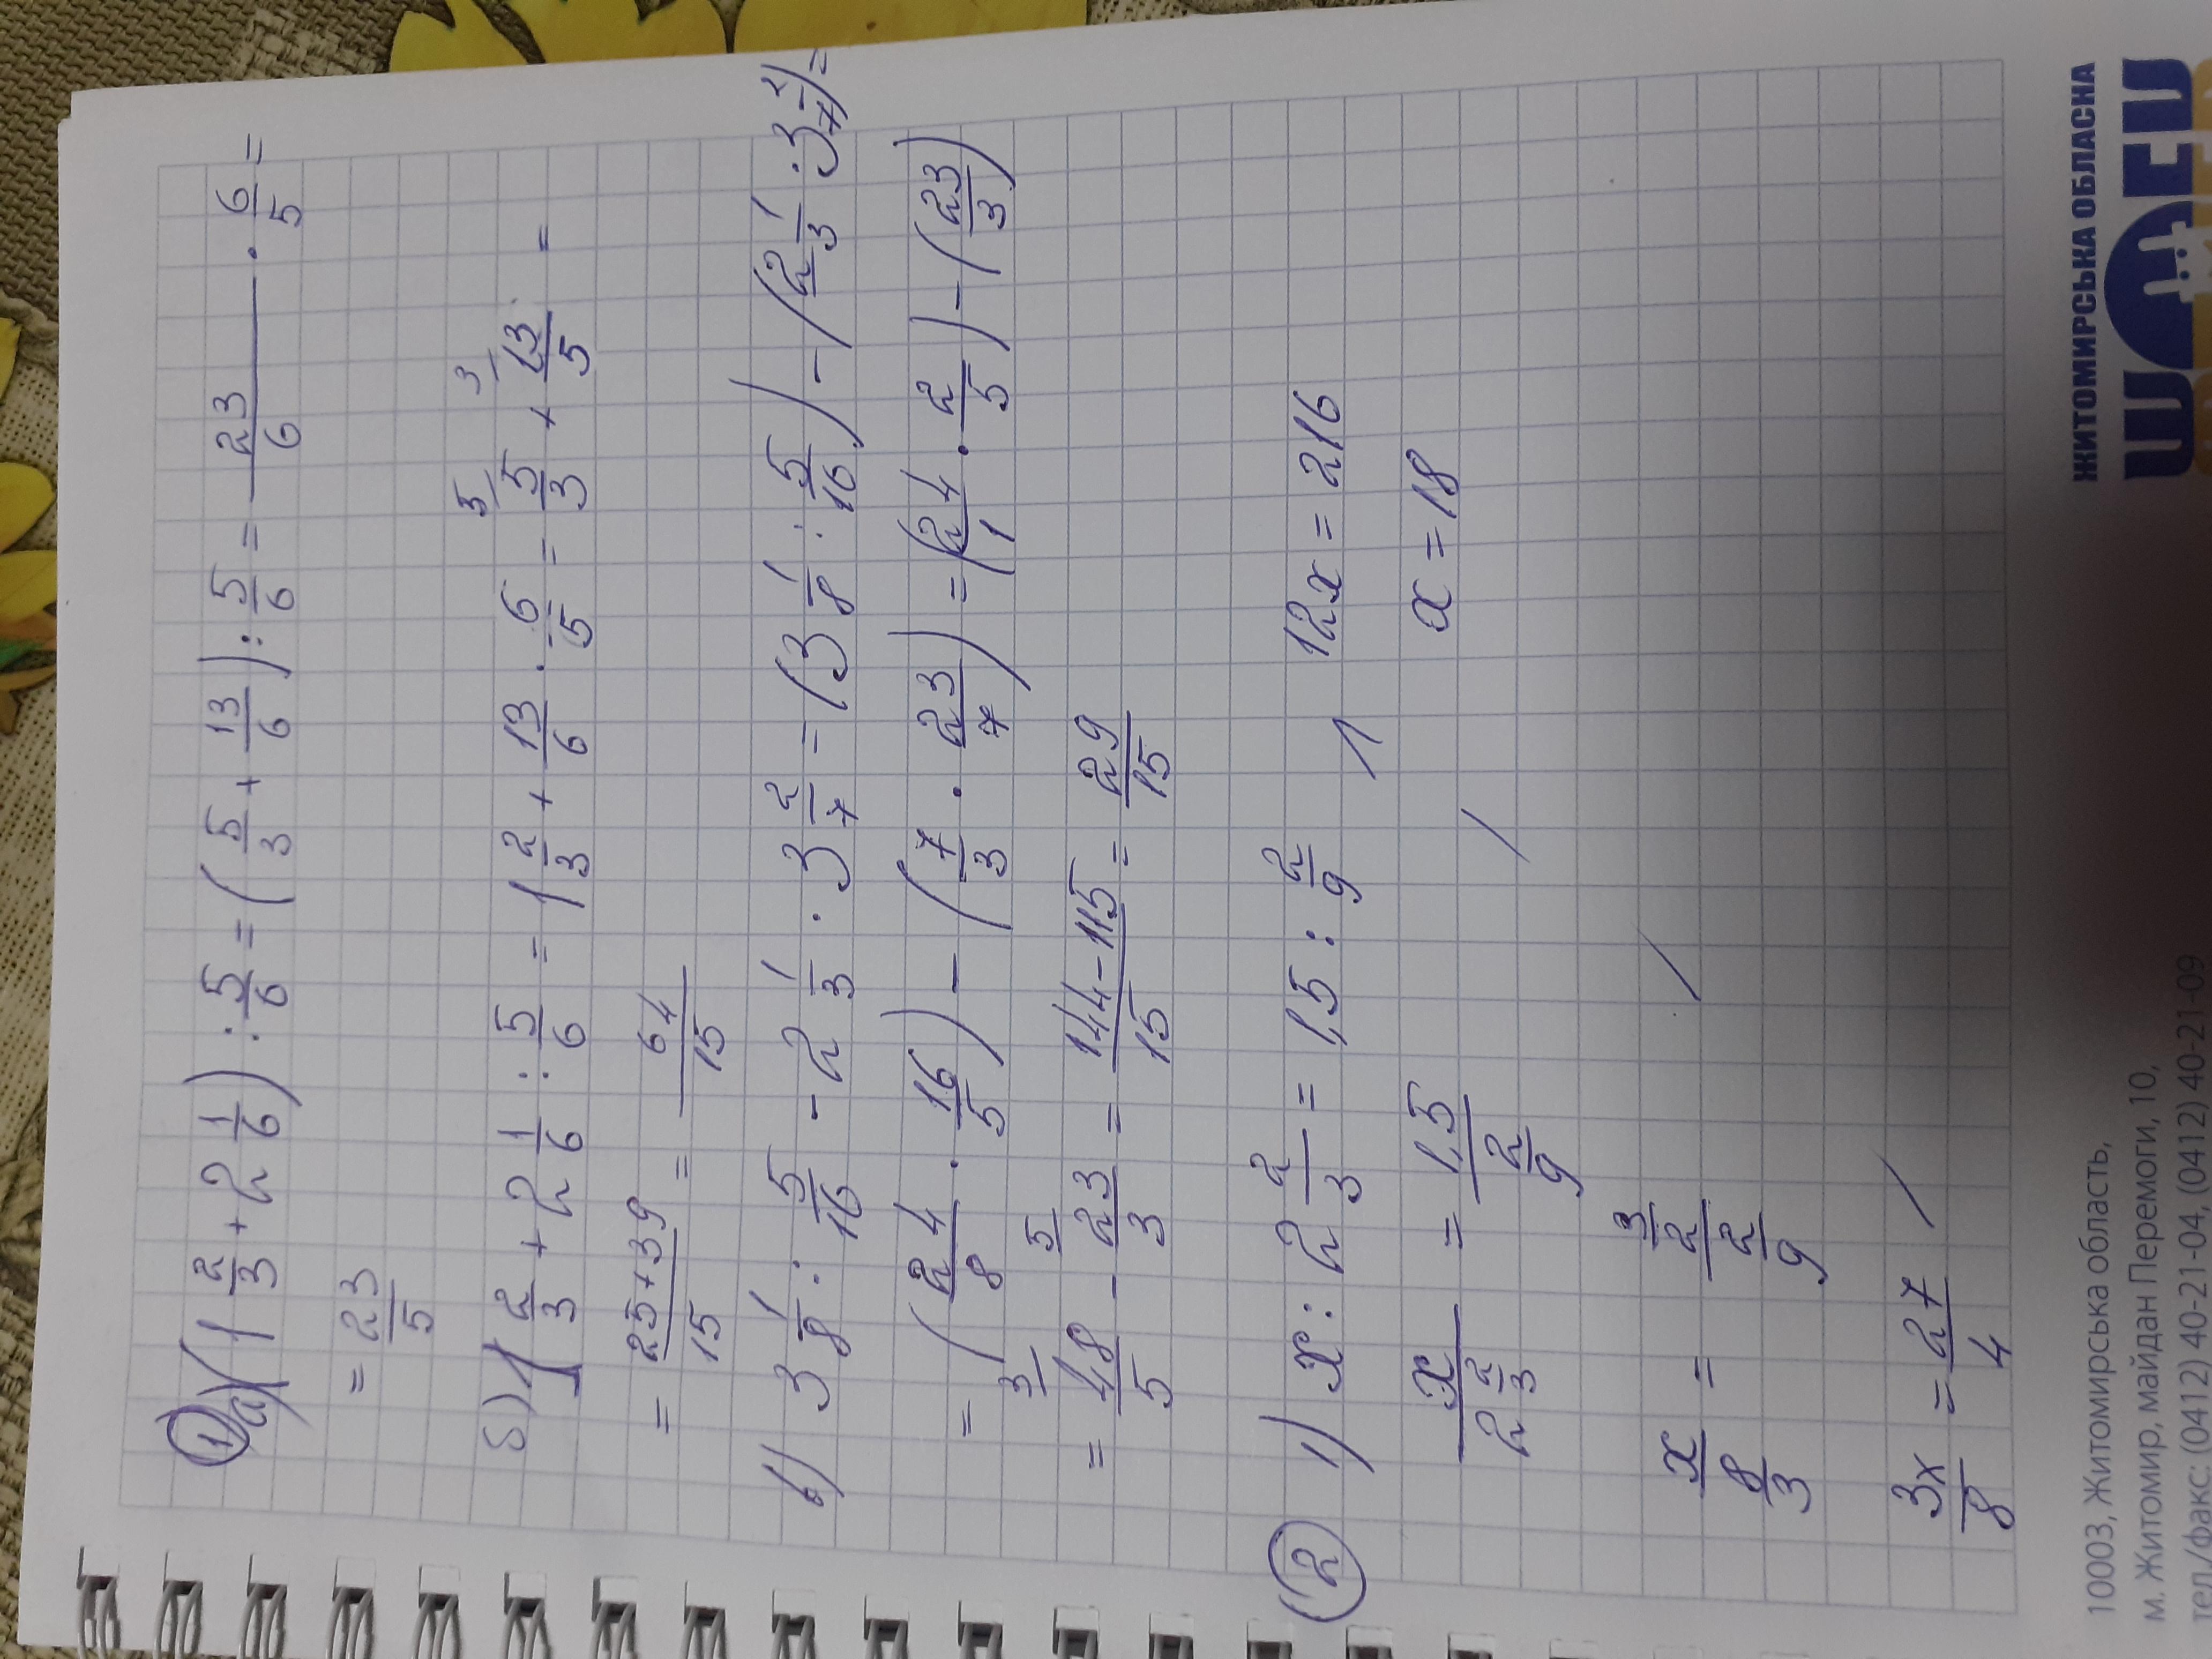 ① а) (1 2/3 + 2 1/6) : 5/6 = (5/3 + 13/6) : 5/6 = 23/6 · 6/5 =
= 23/5
б) 1 2/3 + 2 1/6 : 5/6 = 1 2/3 + 13/6 · 6/5 = 5/3 + 13/5 =
= 25+39/15 = 64/15
в) 3 1/8 : 5/16 - 2 1/3 · 3 2/7 = (3 1/8 : 5/16) - (2 1/3 · 3 2/7) =
= (24/8 · 16/5) - (7/3 · 23/7) = (24/1 · 2/5) - (23/3)
= 48/5 - 23/3 = 144-115/15 = 29/15
② 1) x : 2 2/3 = 1,5 : 2/9 12x = 216
x / 2 2/3 = 1,5 / 2/9 x = 18
x / 8/3 = 3/2 / 2/9
3x/8 = 27/4
ЖИТОМИРСЬКА ОБЛАСНА
10003, Житомирська область,
м. Житомир, майдан Перемоги, 10,
тел./факс: (0412) 40-21-04, (0412) 40-21-09